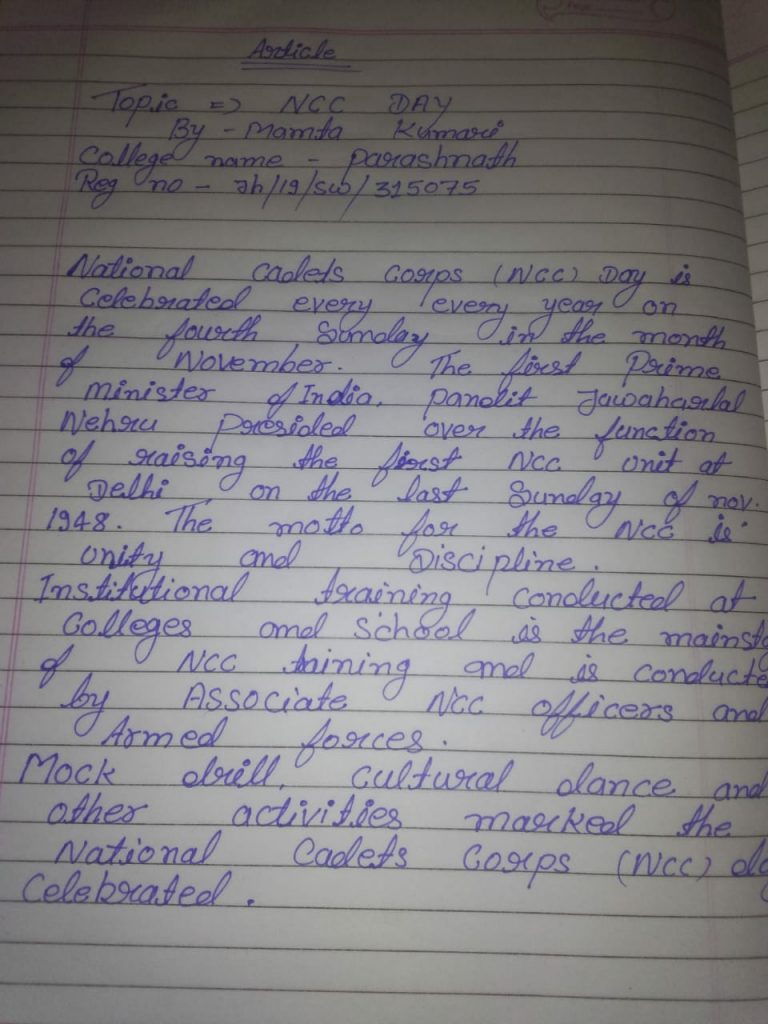 Article
Topic => NCC DAY
By - Mamta Kumari
College name - Parashnath
Reg no - Jh/19/SW/315075
National Cadets Corps (NCC) Day is
Celebrated every every year on
the fourth Sunday in the month
of November. The first Prime
minister of India, Pandit Jawaharlal
Nehru Presided over the function
of raising the first NCC Unit at
Delhi on the last Sunday of nov.
1948. The motto for the NCC is
Unity and Discipline.
Institutional training conducted at
Colleges and School is the mainsta
of NCC tnining and is conducte
by Associate NCC officers and
Armed forces.
Mock drill, cultural dance and
other activities marked the
National Cadets Corps (NCC) da
Celebrated.